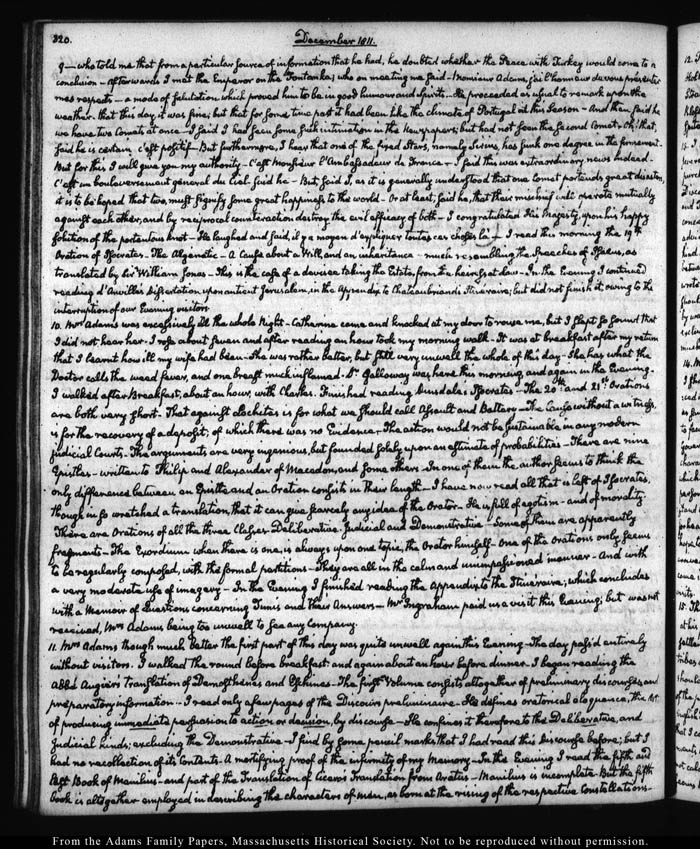 320.
December 1811.
9 — who told me that from a particular source of information that he had, he doubted whether the Peace with Turkey would come to a
conclusion — afterwards I met the Emperor on the Fontanka; who on meeting me said — Monsieur Adams, j'ai l'honneur de vous présenter
mes respects — a mode of salutation which proved him to be in good humour and spirits — He proceeded as usual to remark upon the
weather — that this day it was fine, but that for some time past it had been like the climate of Portugal at this Season — And then said he
we have two Comets at once — I said I had seen some such intimation in the Newspapers; but had not seen the second Comet — Oh! that,
said he is certain c'est positif — But furthermore, I hear that one of the fixed Stars, namely Sirius, has sunk one degree in the firmament.
But for this I will give you my authority — C'est Monsieur l'Ambassadeur de France — I said this was extraordinary news indeed.
C'est un bouleversement général du Ciel said he — But, said I, as it is generally understood that one Comet portends great disasters,
it is to be hoped that two, must signify some great happiness to the world — Or at least, said he, that their mischief will operate mutually
against each other, and by reciprocal counteraction destroy the evil efficacy of both — I congratulated His Majesty, upon his happy
solution of the portentous knot — He laughed and said, il y a moyen d'expliquer toutes ces choses là — I read this morning the 19th
Oration of Isocrates — The Æginetic — A Cause about a Will, and an inheritance — much resembling the Speeches of Isaeus, as
translated by Sir William Jones — This is the case of a devisee taking the Estate, from the heirs at law — In the Evening I continued
reading d'Anville's Dissertation upon antient Jerusalem, in the Appendix to Chateaubriand's Itineraire; but did not finish it owing to the
interruption of our Evening visitors
10. Mrs Adams was excessively ill the whole Night — Catherine came and knocked at my door to rouse me, but I slept so sound that
I did not hear her. I rose about seven and after reading an hour took my morning walk — It was at breakfast after my return
that I learnt how ill my wife had been — She was rather better, but still very unwell the whole of this day — She has what the
Doctor calls the weed fever, and one breast much inflamed. Dr Galloway was here this morning and again in the Evening.
I walked after Breakfast, about an hour, with Charles. Finished reading Dinsdale's Isocrates — The 20th and 21st Orations
are both very short. That against Lochites is for what we should call Assault and Battery — The Cause without a witness,
is for the recovery of a deposit, of which there was no Evidence — The action would not be sustainable in any modern
judicial Courts. The arguments are very ingenious, but founded solely upon an estimate of probabilities — There are nine
Epistles — written to Philip and Alexander of Macedon, and some others — In one of them the author seems to think the
only difference between an Epistle and an Oration consists in their length — I have now read all that is left of Isocrates,
though in so wretched a translation, that it can give scarcely any idea of the Orator — He is full of egotism — and of morality.
There are Orations of all the three Classes — Deliberative, Judicial and Demonstrative — Some of them are apparently
fragments — The Exordium when there is one, is always upon one topic, the Orator himself — One of the Orations only seems
to be regularly composed, with the formal partitions — They are all in the calm and unimpassioned manner — And with
a very moderate use of imagery — In the Evening I finished reading the Appendix to the Itineraire; which concludes
with a Memoir of Questions concerning Tunis and their Answers — Mr Ingraham paid us a visit this Evening; but was not
received, Mrs Adams being too unwell to see any Company.
11. Mrs Adams though much better the first part of this day was quite unwell again this Evening — The day pass'd entirely
without visitors. I walked the round before breakfast and again about an hour before dinner. I began reading the
Abbé Auger's translation of Demosthenes and Eschines — The first Volume consists altogether of preliminary discourses and
preparatory information — I read only a few pages of the Discours preliminaire — He defines oratorical eloquence, the Art
of producing immediate persuasion to action or decision, by discourse — He confines it therefore to the Deliberative, and
Judicial kinds; excluding the Demonstrative — I find by some pencil marks that I had read this discourse before; but I
had no recollection of its Contents — A mortifying proof of the infirmity of my Memory — In the Evening I read the fifth and
last Book of Manilius — and part of the Translation of Cicero's Translation from Aratus — Manilius is incomplete — But the fifth
book is altogether employed in describing the characters of men, as born at the rising of the respective Constellations —
From the Adams Family Papers, Massachusetts Historical Society. Not to be reproduced without permission.